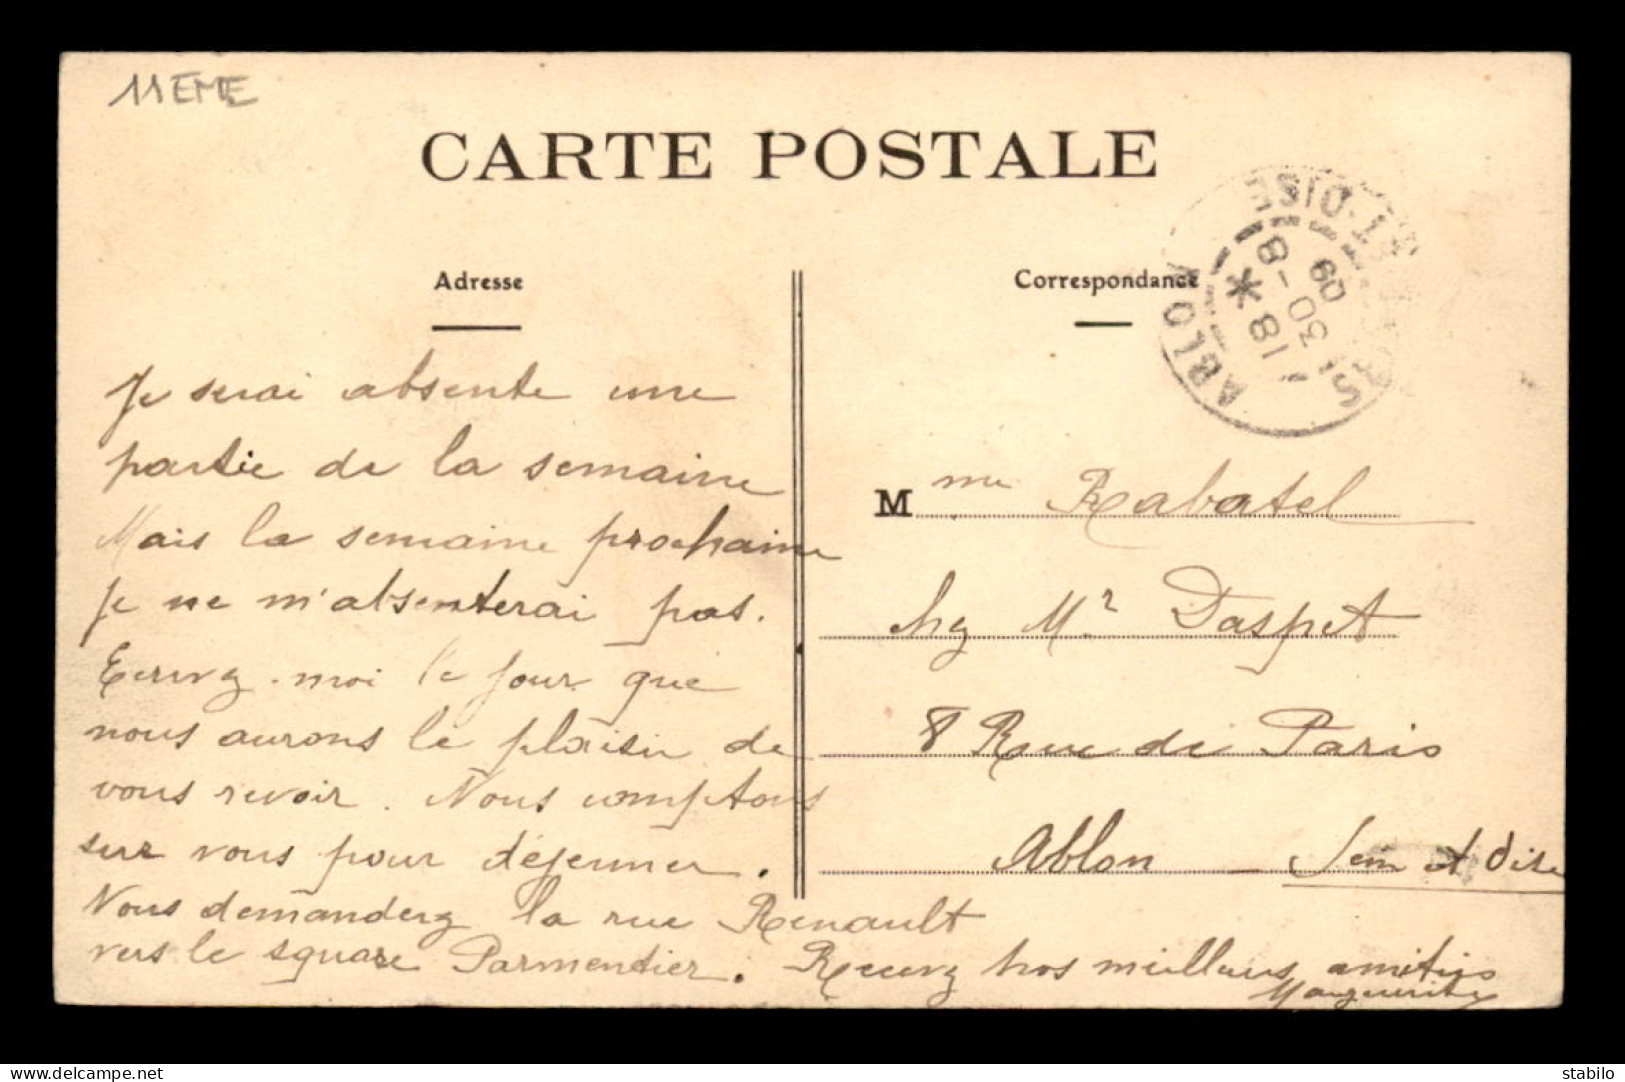 11EME
CARTE POSTALE
Adresse
Correspondance
ABLON
S. ET-OISE
18 *
30 - 8
09
Je serai absente une
partie de la semaine
Mais la semaine prochaine
Je ne m'absenterai pas.
Ecrivez-moi le jour que
nous aurons le plaisir de
vous revoir. Nous comptons
sur vous pour déjeuner.
Vous demanderez la rue Renault
vers le square Parmentier. Recevez nos meilleurs amitiés
Marguerite
Mme Rabatel
chez Mr Daspet
8 Rue de Paris
Ablon Seine et Oise
delcampe.net
stabilo